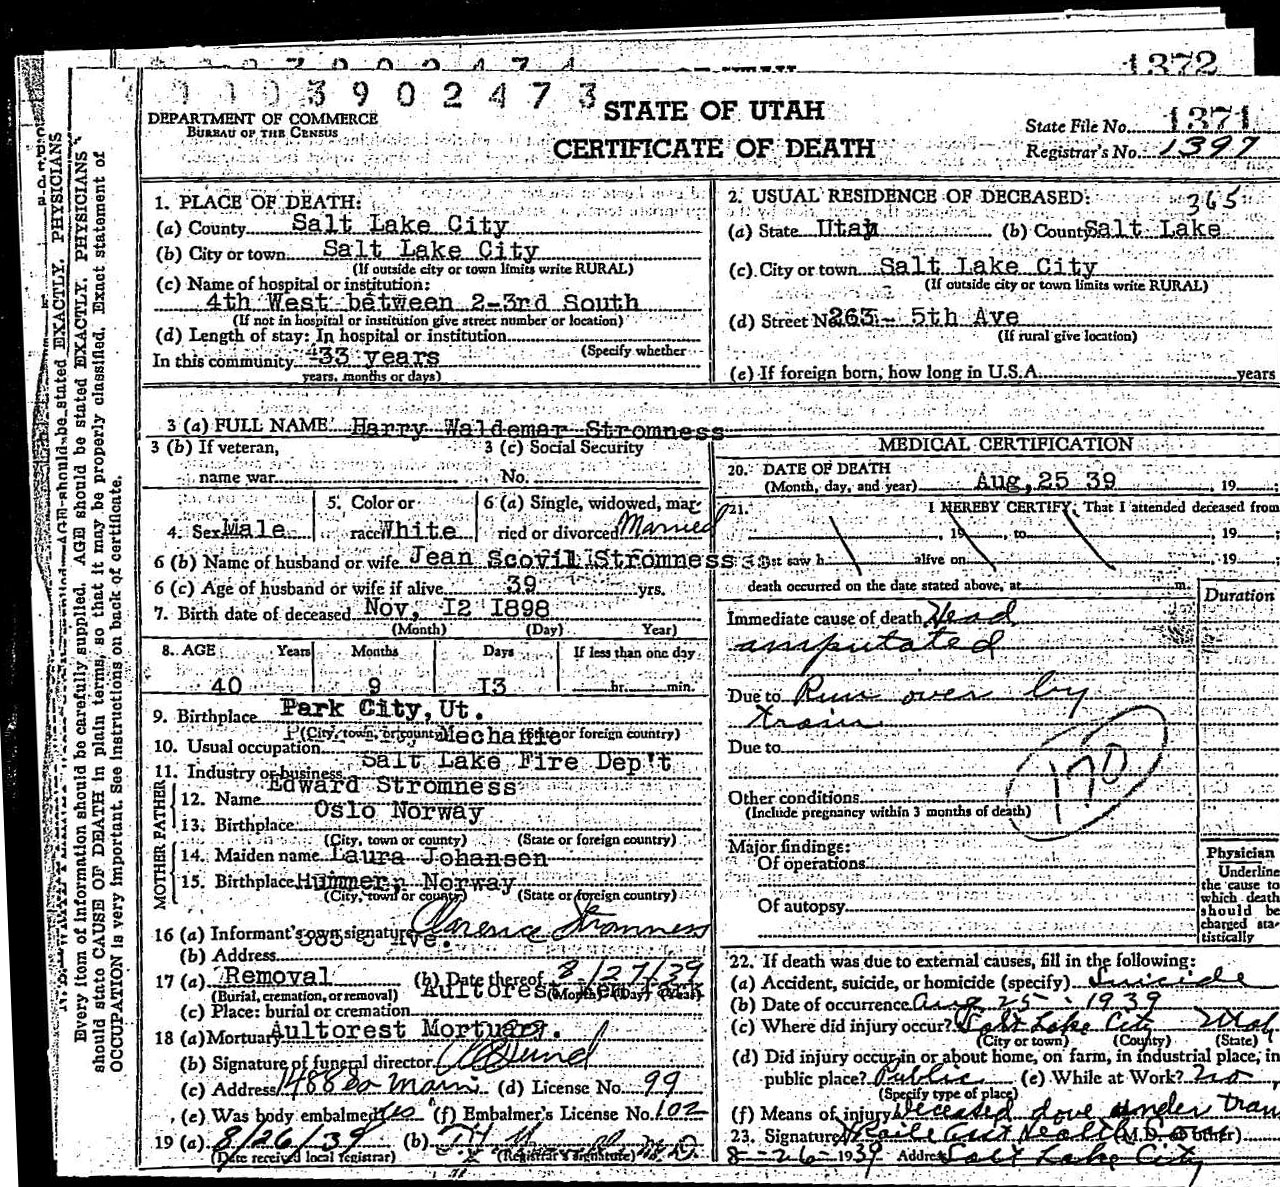 1372
0 0 0 3 9 0 2 4 7 3
DEPARTMENT OF COMMERCE
BUREAU OF THE CENSUS
STATE OF UTAH
CERTIFICATE OF DEATH
State File No. 1371
Registrar's No. 1397
Every item of information should be carefully supplied. AGE should be stated EXACTLY. PHYSICIANS
should state CAUSE OF DEATH in plain terms, so that it may be properly classified. Exact statement of
OCCUPATION is very important. See instructions on back of certificate.
1. PLACE OF DEATH:
(a) County Salt Lake City
(b) City or town Salt Lake City
(If outside city or town limits write RURAL)
(c) Name of hospital or institution:
4th West between 2-3rd South
(If not in hospital or institution give street number or location)
(d) Length of stay: In hospital or institution
(Specify whether
In this community 33 years
years, months or days)
2. USUAL RESIDENCE OF DECEASED: 365
(a) State Utah (b) County Salt Lake
(c) City or town Salt Lake City
(If outside city or town limits write RURAL)
(d) Street No. 263 - 5th Ave
(If rural give location)
(e) If foreign born, how long in U.S.A. years
3 (a) FULL NAME Harry Waldemar Stromness
3 (b) If veteran,
name war
3 (c) Social Security
No.
4. Sex Male
5. Color or
race White
6 (a) Single, widowed, mar-
ried or divorced Married
6 (b) Name of husband or wife Jean Scovil Stromness
6 (c) Age of husband or wife if alive 39 yrs.
7. Birth date of deceased Nov, 12 1898
(Month) (Day) Year)
8. AGE Years Months Days If less than one day
40 9 13 hr. min.
9. Birthplace Park City, Ut.
(City, town, or county) (State or foreign country)
10. Usual occupation Mechanic
11. Industry or business Salt Lake Fire Dep't
FATHER
12. Name Edward Stromness
13. Birthplace Oslo Norway
(City, town or county) (State or foreign country)
MOTHER
14. Maiden name Laura Johansen
15. Birthplace Hummer, Norway
(City, town or county) (State or foreign country)
16 (a) Informant's own signature Clarence Stromness
(b) Address Ave.
17 (a) Removal (b) Date thereof 8/27/39
(Burial, cremation, or removal) (Month) (Day) (Year)
(c) Place: burial or cremation Aultorest Mem Park
18 (a) Mortuary Aultorest Mortuary.
(b) Signature of funeral director
(c) Address 1488 So Main (d) License No. 99
(e) Was body embalmed Yes (f) Embalmer's License No. 102
19 (a) 8/26/39 (b)
(Date received local registrar) (Registrar's signature)
MEDICAL CERTIFICATION
20. DATE OF DEATH
(Month, day, and year) Aug, 25 39, 19 ;
21. I HEREBY CERTIFY, That I attended deceased from
, 19 , to , 19 ;
last saw h alive on , 19 ;
death occurred on the date stated above, at m.
Duration
Immediate cause of death Head
amputated
Due to Run over by
train
Due to
170
Other conditions
(Include pregnancy within 3 months of death)
Major findings:
Of operations
Of autopsy
Physician
Underline
the cause to
which death
should be
charged sta-
tistically
22. If death was due to external causes, fill in the following:
(a) Accident, suicide, or homicide (specify) Suicide
(b) Date of occurrence Aug 25 - 1939
(c) Where did injury occur? Salt Lake City Utah
(City or town) (County) (State)
(d) Did injury occur in or about home, on farm, in industrial place, in
public place? Public (e) While at Work? no
(Specify type of place)
(f) Means of injury Deceased dove under train
23. Signature (M.D. or other)
8-26-1939 Address Salt Lake City